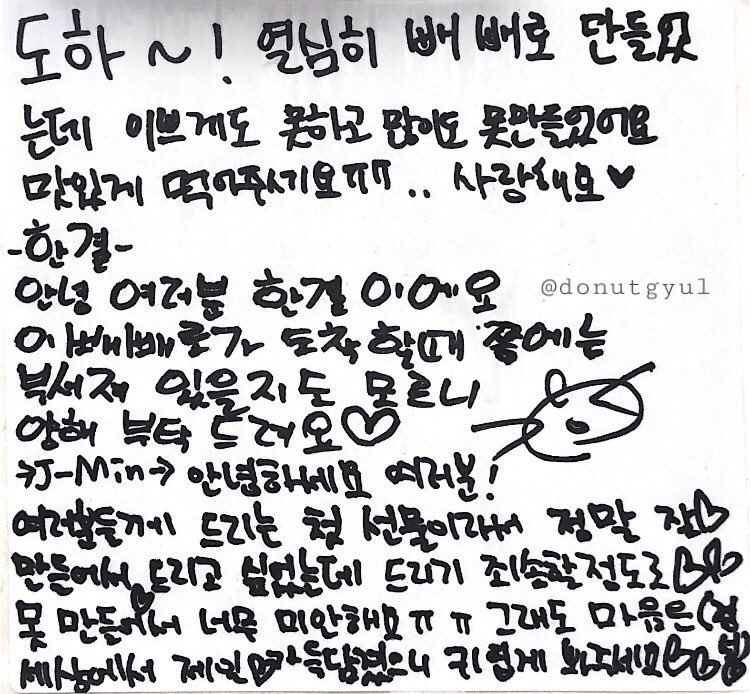 도하~! 열심히 빼빼로 만들었
는데 이쁘게도 못하고 많이도 못만들었어요
맛있게 먹어주세요ㅠㅠ.. 사랑해요♥
-한결-
안녕 여러분 한결이에요
@donutgyul
이 빼빼로가 도착할때 쯤에는
부서져 있을지도 모르니
양해 부탁드려요♡
→J-Min→ 안녕하세요 여러분!
여러분들께 드리는 첫 선물이라서 정말 잘♡
만들어서 드리고 싶었는데 드리기 죄송할정도로♡♡
못 만들어서 너무 미안해요ㅠㅠ 그래도 마음은
세상에서 제일♡가득담겼으니 귀엽게 봐주세요♡♡